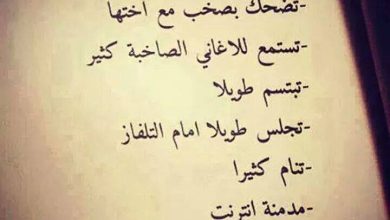 -تضحك بصخب مع اختها
-تستمع للاغاني الصاخبة كثير
-تبتسم طويلا
-تجلس طويلا امام التلفاز
-تنام كثيرا
-مدمنة انترنت